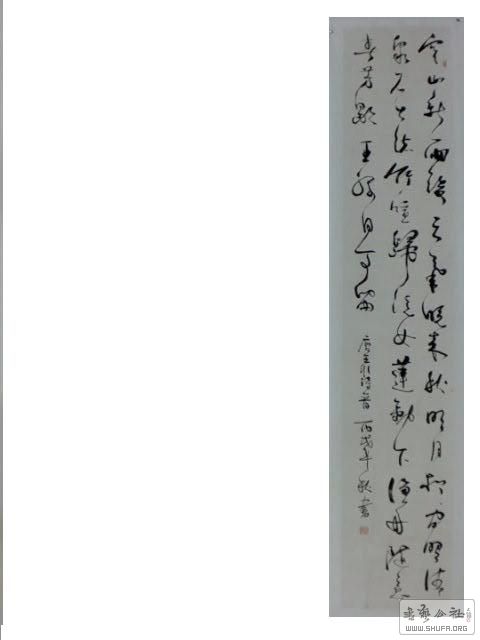 空山新雨後天氣晚來秋明月松間照清
泉石上流竹喧歸浣女蓮動下漁舟隨意
春芳歇王孫自可留
唐王維詩 丙戌年秋書
書藝公社
WWW.SHUFA.ORG